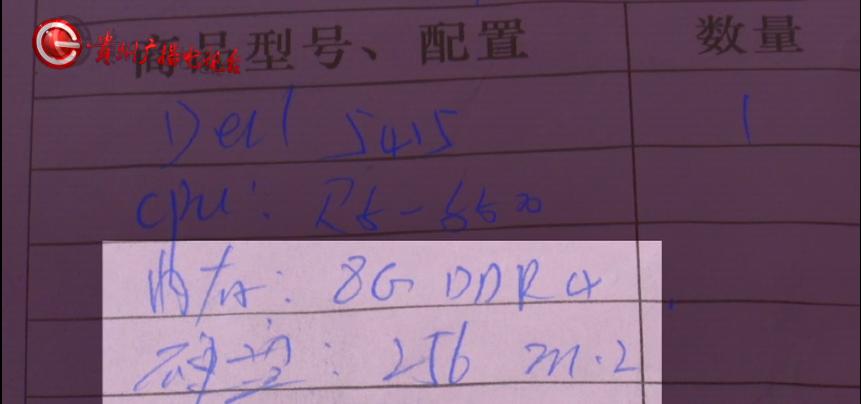 贵州广播电视台
商品型号、配置 数量
Dell 5415 1
cpu: R5-5500
内存: 8G DDR4
硬盘: 256 m.2